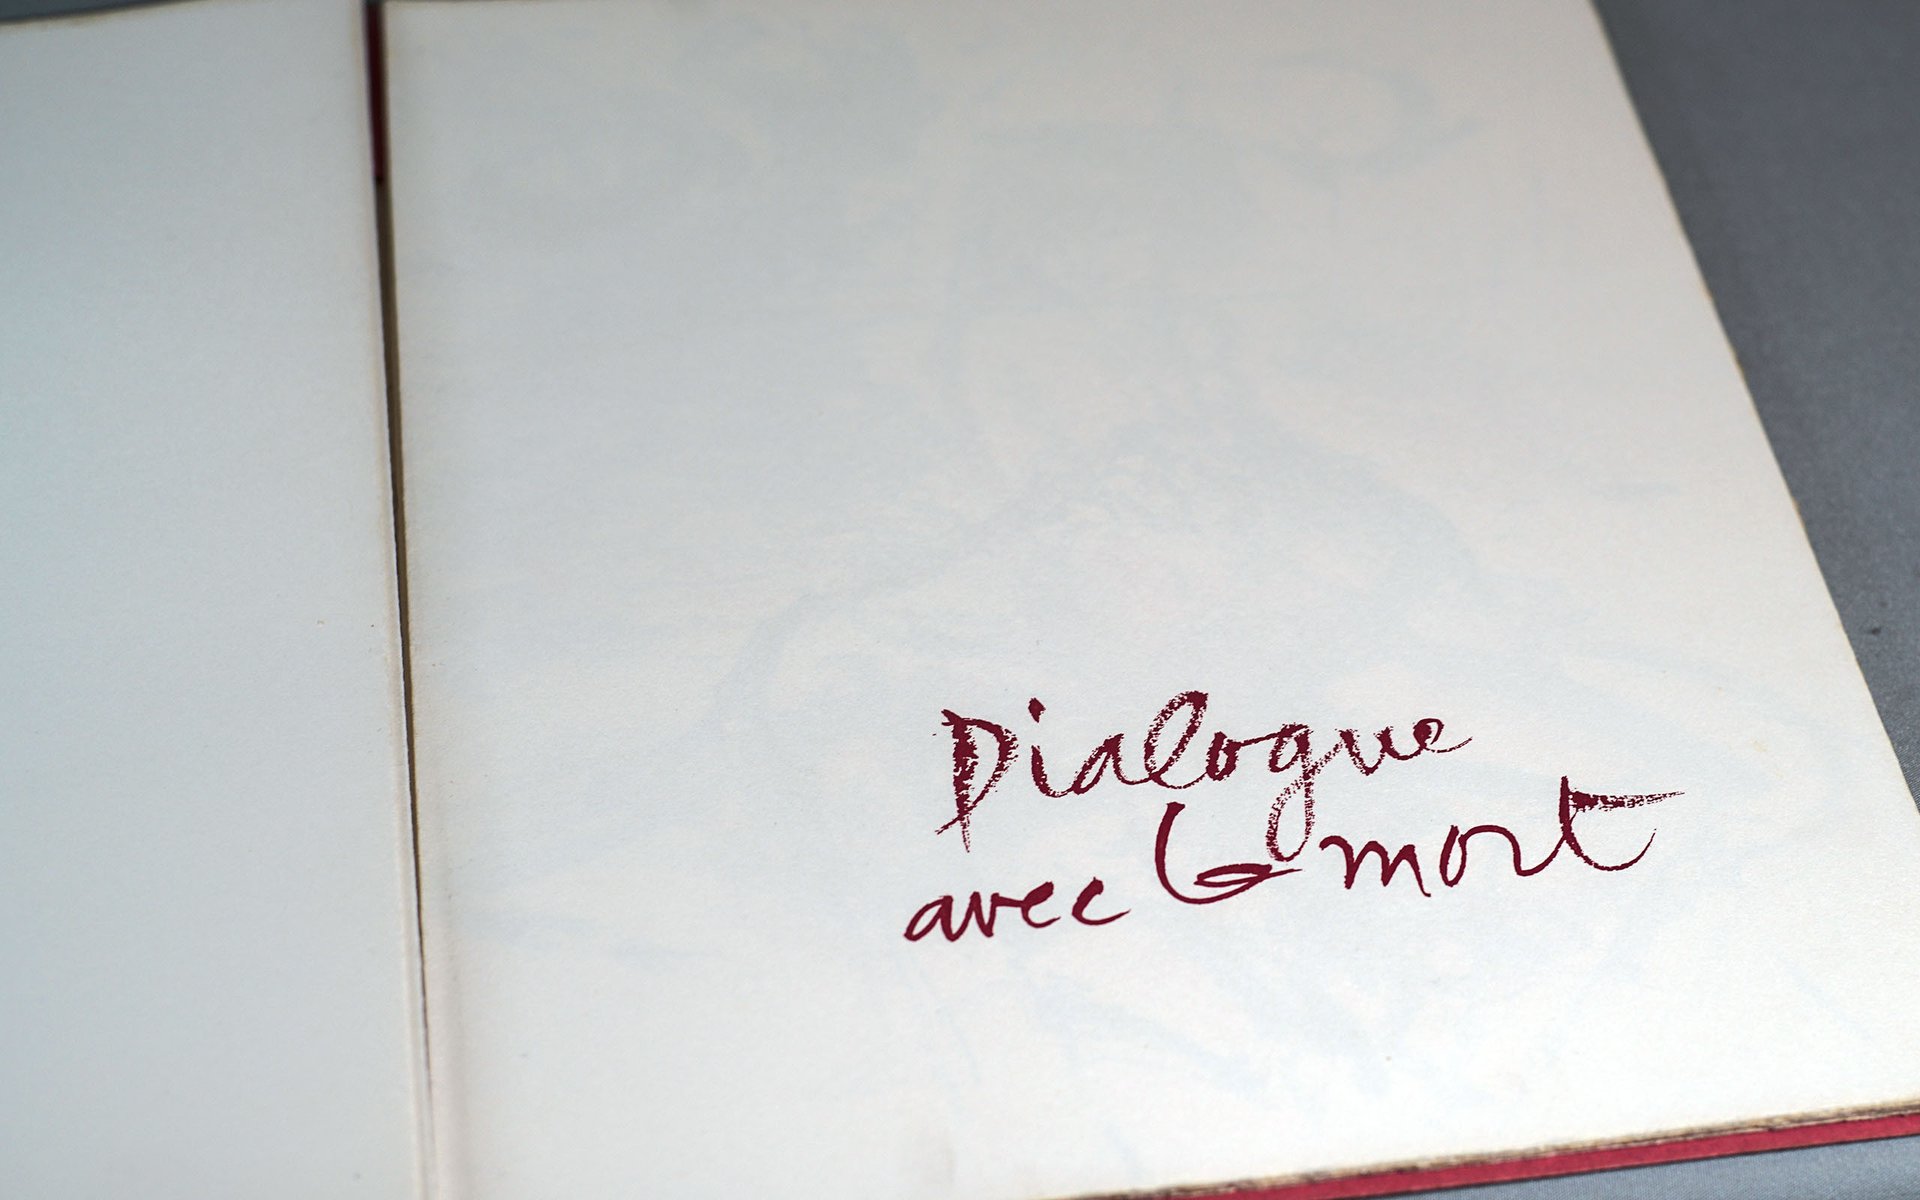 Dialogue
avec la mort